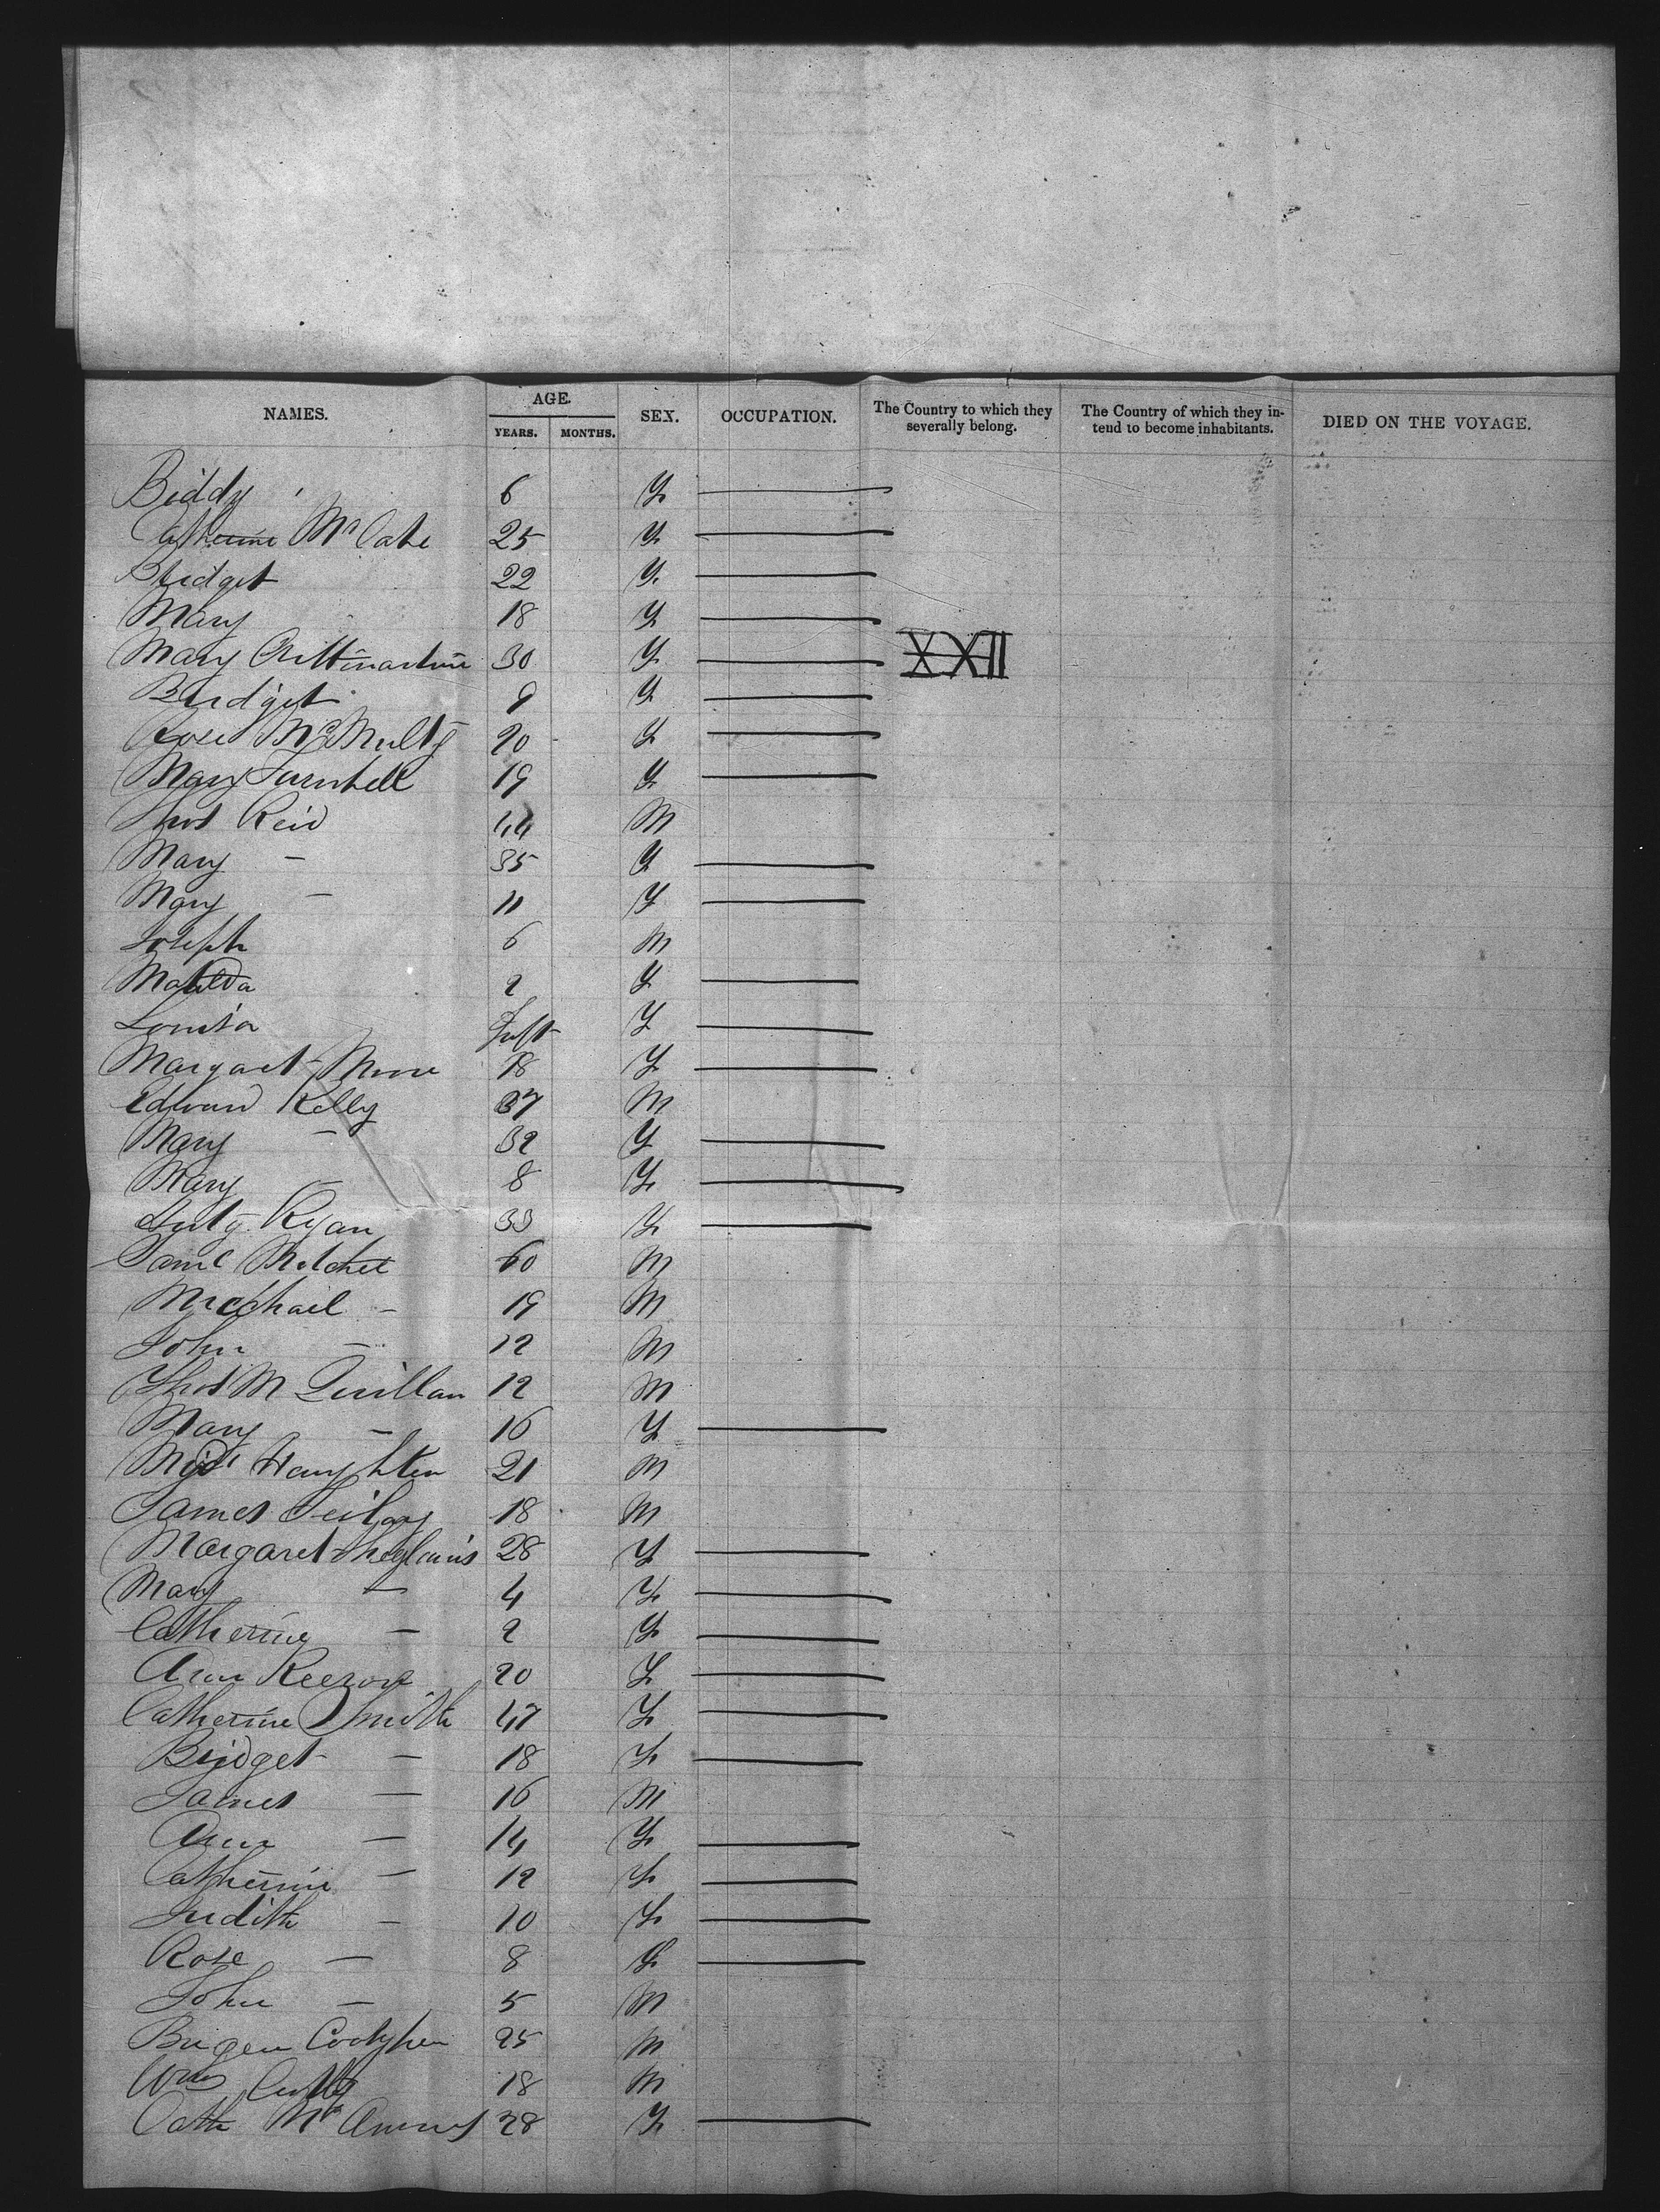 NAMES. AGE. YEARS. MONTHS. SEX. OCCUPATION. The Country to which they severally belong. The Country of which they intend to become inhabitants. DIED ON THE VOYAGE.
Biddy 6 F
Catherine McCabe 25 F
Bridget 22 F
Mary 18 F
Mary 30 F XXII
Bridget 9 F
Rose McNulty 20 F
Mary Turnbell 19 F
Thos Reid 44 M
Mary – 35 F
Mary – 11 F
Joseph 6 M
Matilda 2 F
Louisa Inft F
Margaret Moore 18 F
Edward Kelly 37 M
Mary – 32 F
Mary – 8 F
Judy Ryan 33 F
Saml Mitchel 60 M
Michail – 19 M
John – 12 M
Thos M Quillan 12 M
Mary – 16 F
Haughton 21 M
James 18 M
Margaret 28 F
Mary – 4 F
Catherine – 2 F
Ann 20 F
Catherine Smith 47 F
Bridget – 18 F
James – 16 M
Ann – 14 F
Catherine – 12 F
Judith – 10 F
Rose – 8 F
John – 5 M
25 M
Wm 18 M
Cath Mc 28 F